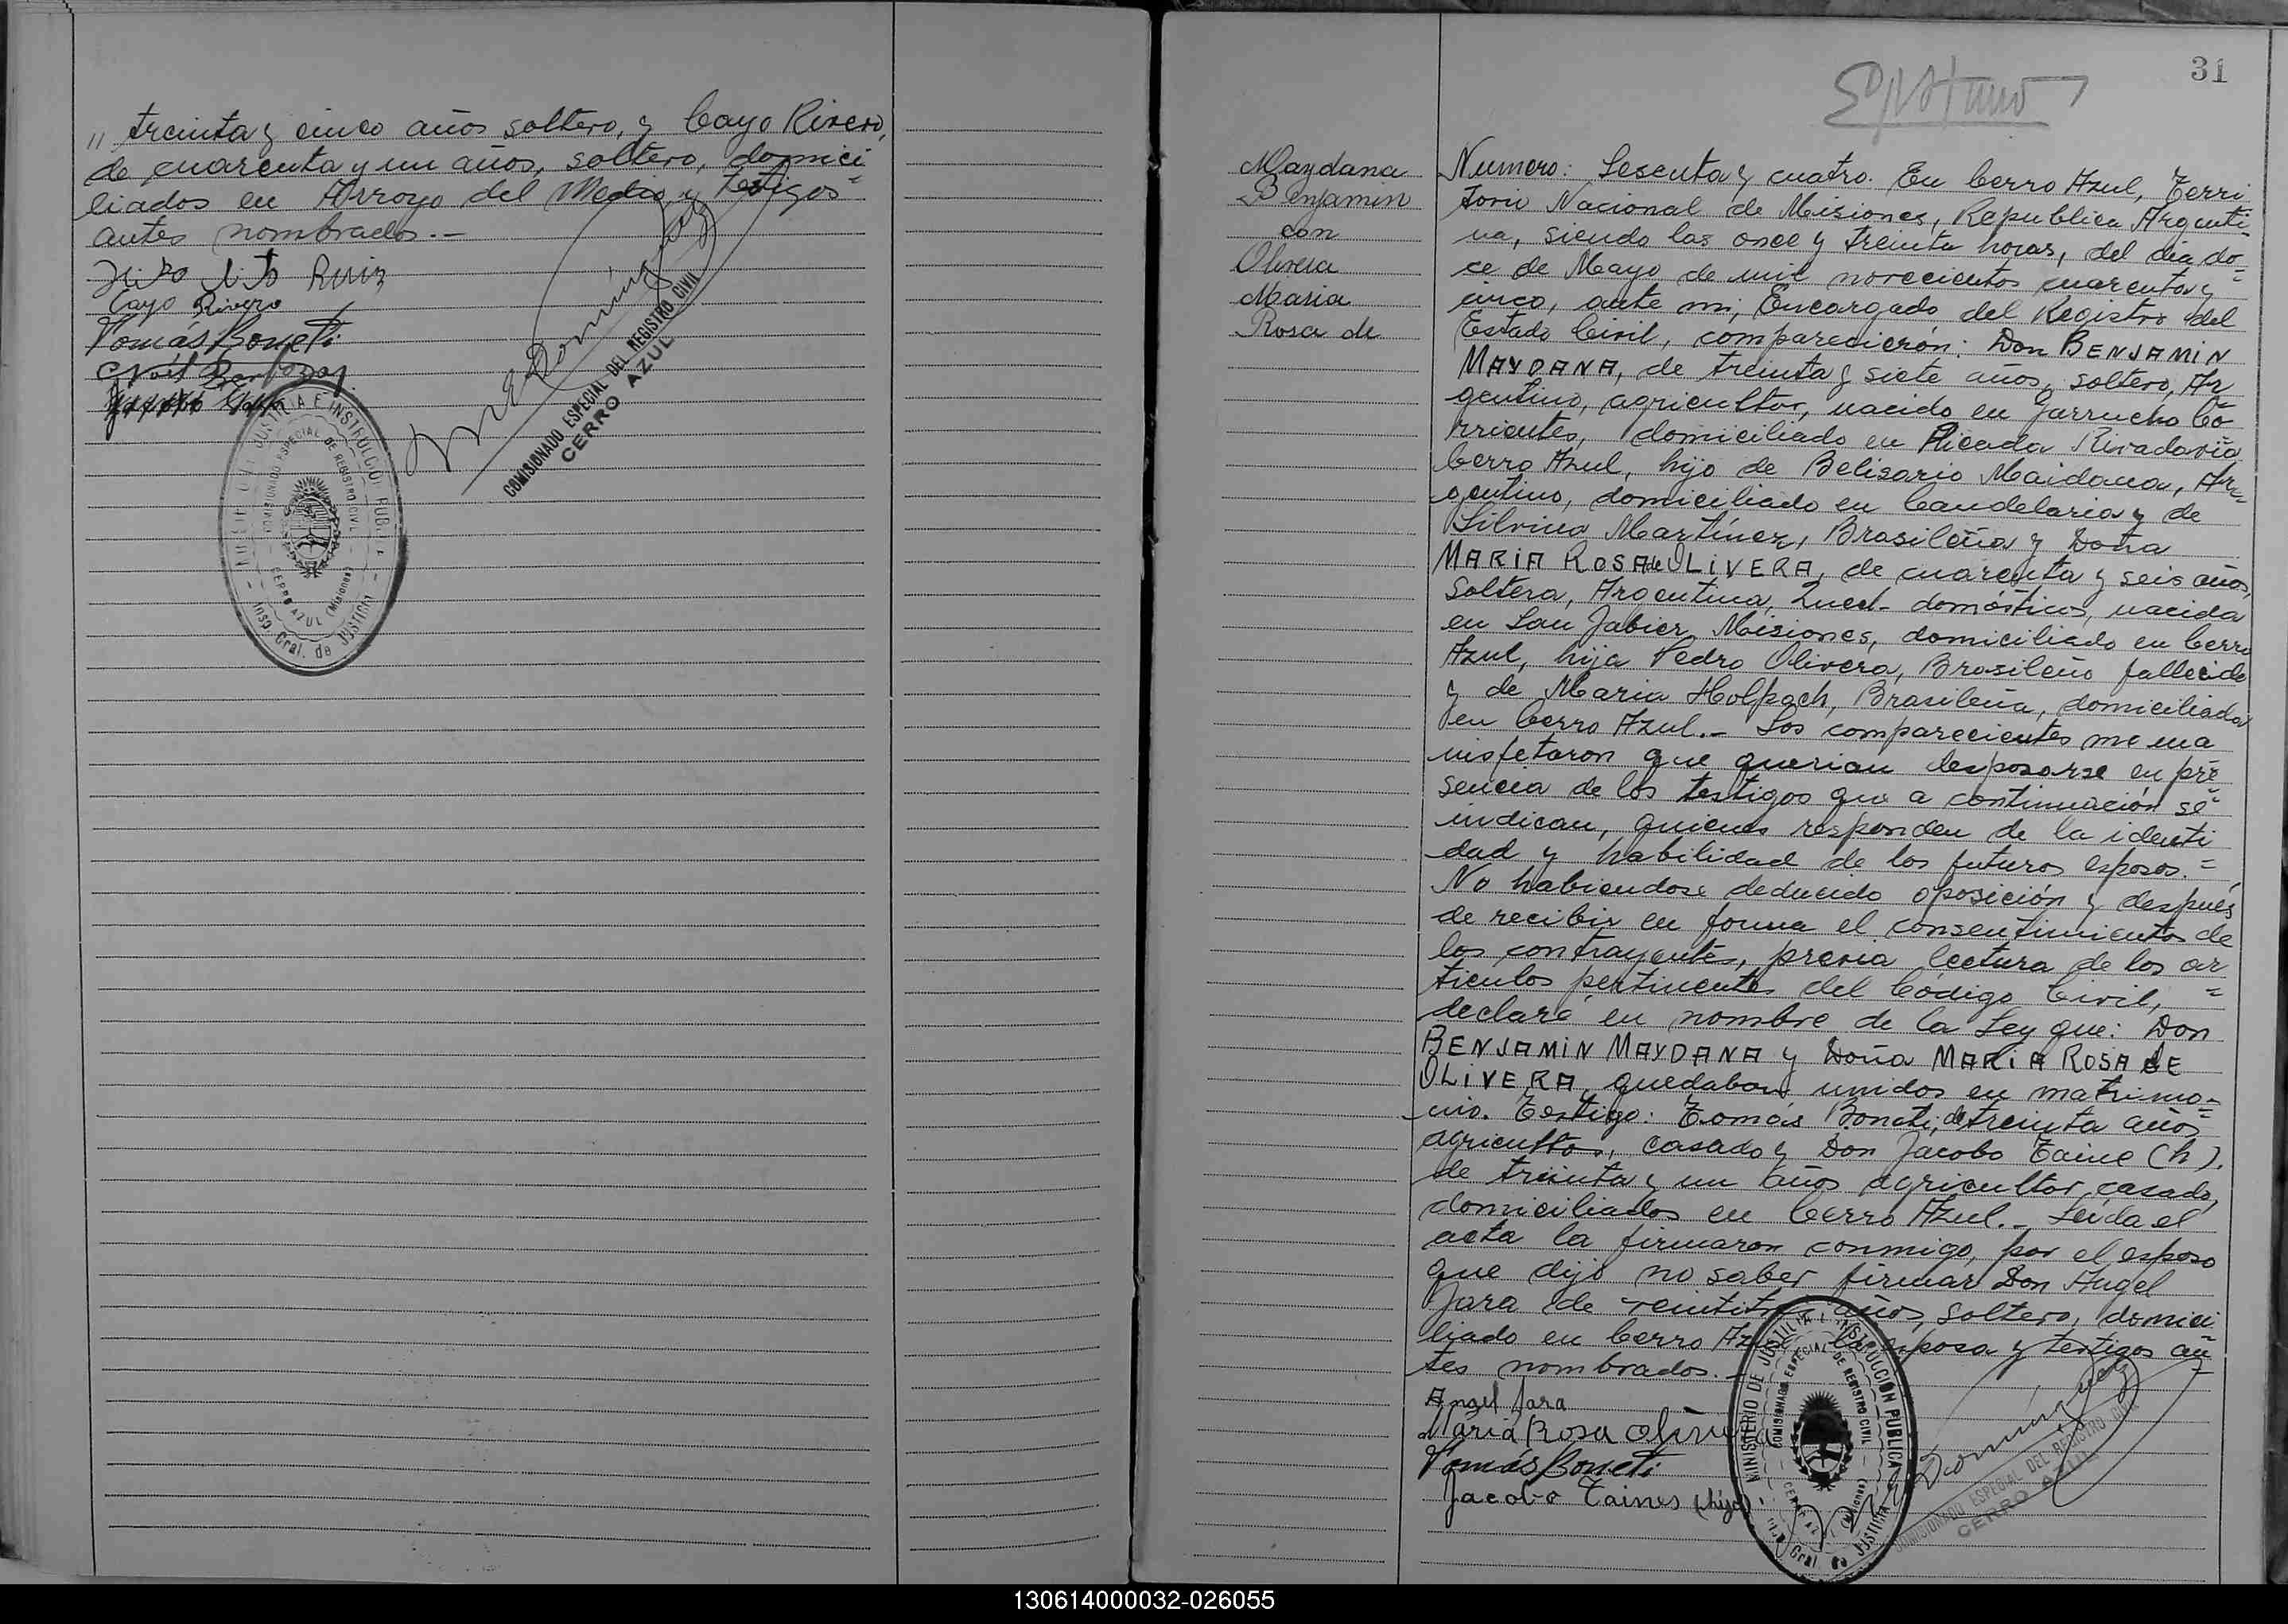 " treinta y cinco años soltero, y Cayo Rivero,
de cuarenta y un años, soltero, domici
liados en Arroyo del Medio y testigos
antes nombrados.-
Ruiz
Cayo Rivero
Tomás Boneti
COMISIONADO ESPECIAL DEL REGISTRO CIVIL
CERRO AZUL
MINISTERIO DE JUSTICIA E INSTRUCCION PUBLICA
COMISIONADO ESPECIAL DE REGISTRO CIVIL
CERRO AZUL (Misiones)
Insp. Gral. de Justicia
31
Maydana
Benjamin
con
Olivera
Maria
Rosa de
Numero: Sesenta y cuatro. En Cerro Azul, Terri
torio Nacional de Misiones, Republica Argenti
na, siendo las once y treinta horas, del dia do=
ce de Mayo de mil novecientos cuarenta y
cinco, ante mi, Encargado del Registro del
Estado Civil, comparecieron: Don BENJAMIN
MAYDANA, de treinta y siete años, soltero, Ar
gentino, agricultor, nacido en Garrucho Co
rrientes, domiciliado en Picada Rivadavia
Cerro Azul, hijo de Belisario Maidana, Ar=
gentino, domiciliado en Candelaria y de
Silvina Martínez, Brasileña y Doña
MARIA ROSA de OLIVERA, de cuarenta y seis años,
Soltera, Argentina, Quel- domésticos, nacida
en San Jabier, Misiones, domiciliado en Cerro
Azul, hija Pedro Olivera, Brasileño fallecido
y de Maria Holpach, Brasileña, domiciliada
en Cerro Azul.- Los comparecientes me ma
nisfetaron que querian desposarse en pre
sencia de los testigos que a continuación se=
indican, quienes responden de la identi
dad y habilidad de los futuros esposos.=
No habiendose deducido oposición y después
de recibir en forma el consentimiento de
los contrayentes, previa lectura de los ar
ticulos pertinentes del Código Civil, =
declaré en nombre de la Ley que: Don
BENJAMIN MAYDANA y Doña MARIA ROSA DE
OLIVERA, quedaban unidos en matrimo=
nio. Testigo: Tomás Boneti, de treinta años
agricultor, casado y Don Jacobo Taine (h).
de treinta y un años agricultor, casado,
domiciliados en Cerro Azul.- Leida el
acta la firmaron conmigo, por el esposo
que dijo no saber firmar Don Angel
Jara de veintitres años, soltero, domici
liado en Cerro Azul, la esposa y testigos an=
tes nombrados.-
Angel Jara
Maria Rosa Olivera
Tomás Boneti
Jacobo Taines (hijo)
MINISTERIO DE JUSTICIA E INSTRUCCION PUBLICA
COMISIONADO ESPECIAL DE REGISTRO CIVIL
CERRO AZUL (Misiones)
Insp. Gral. de Justicia
COMISIONADO ESPECIAL DEL REGISTRO CIVIL
CERRO AZUL
130614000032-026055